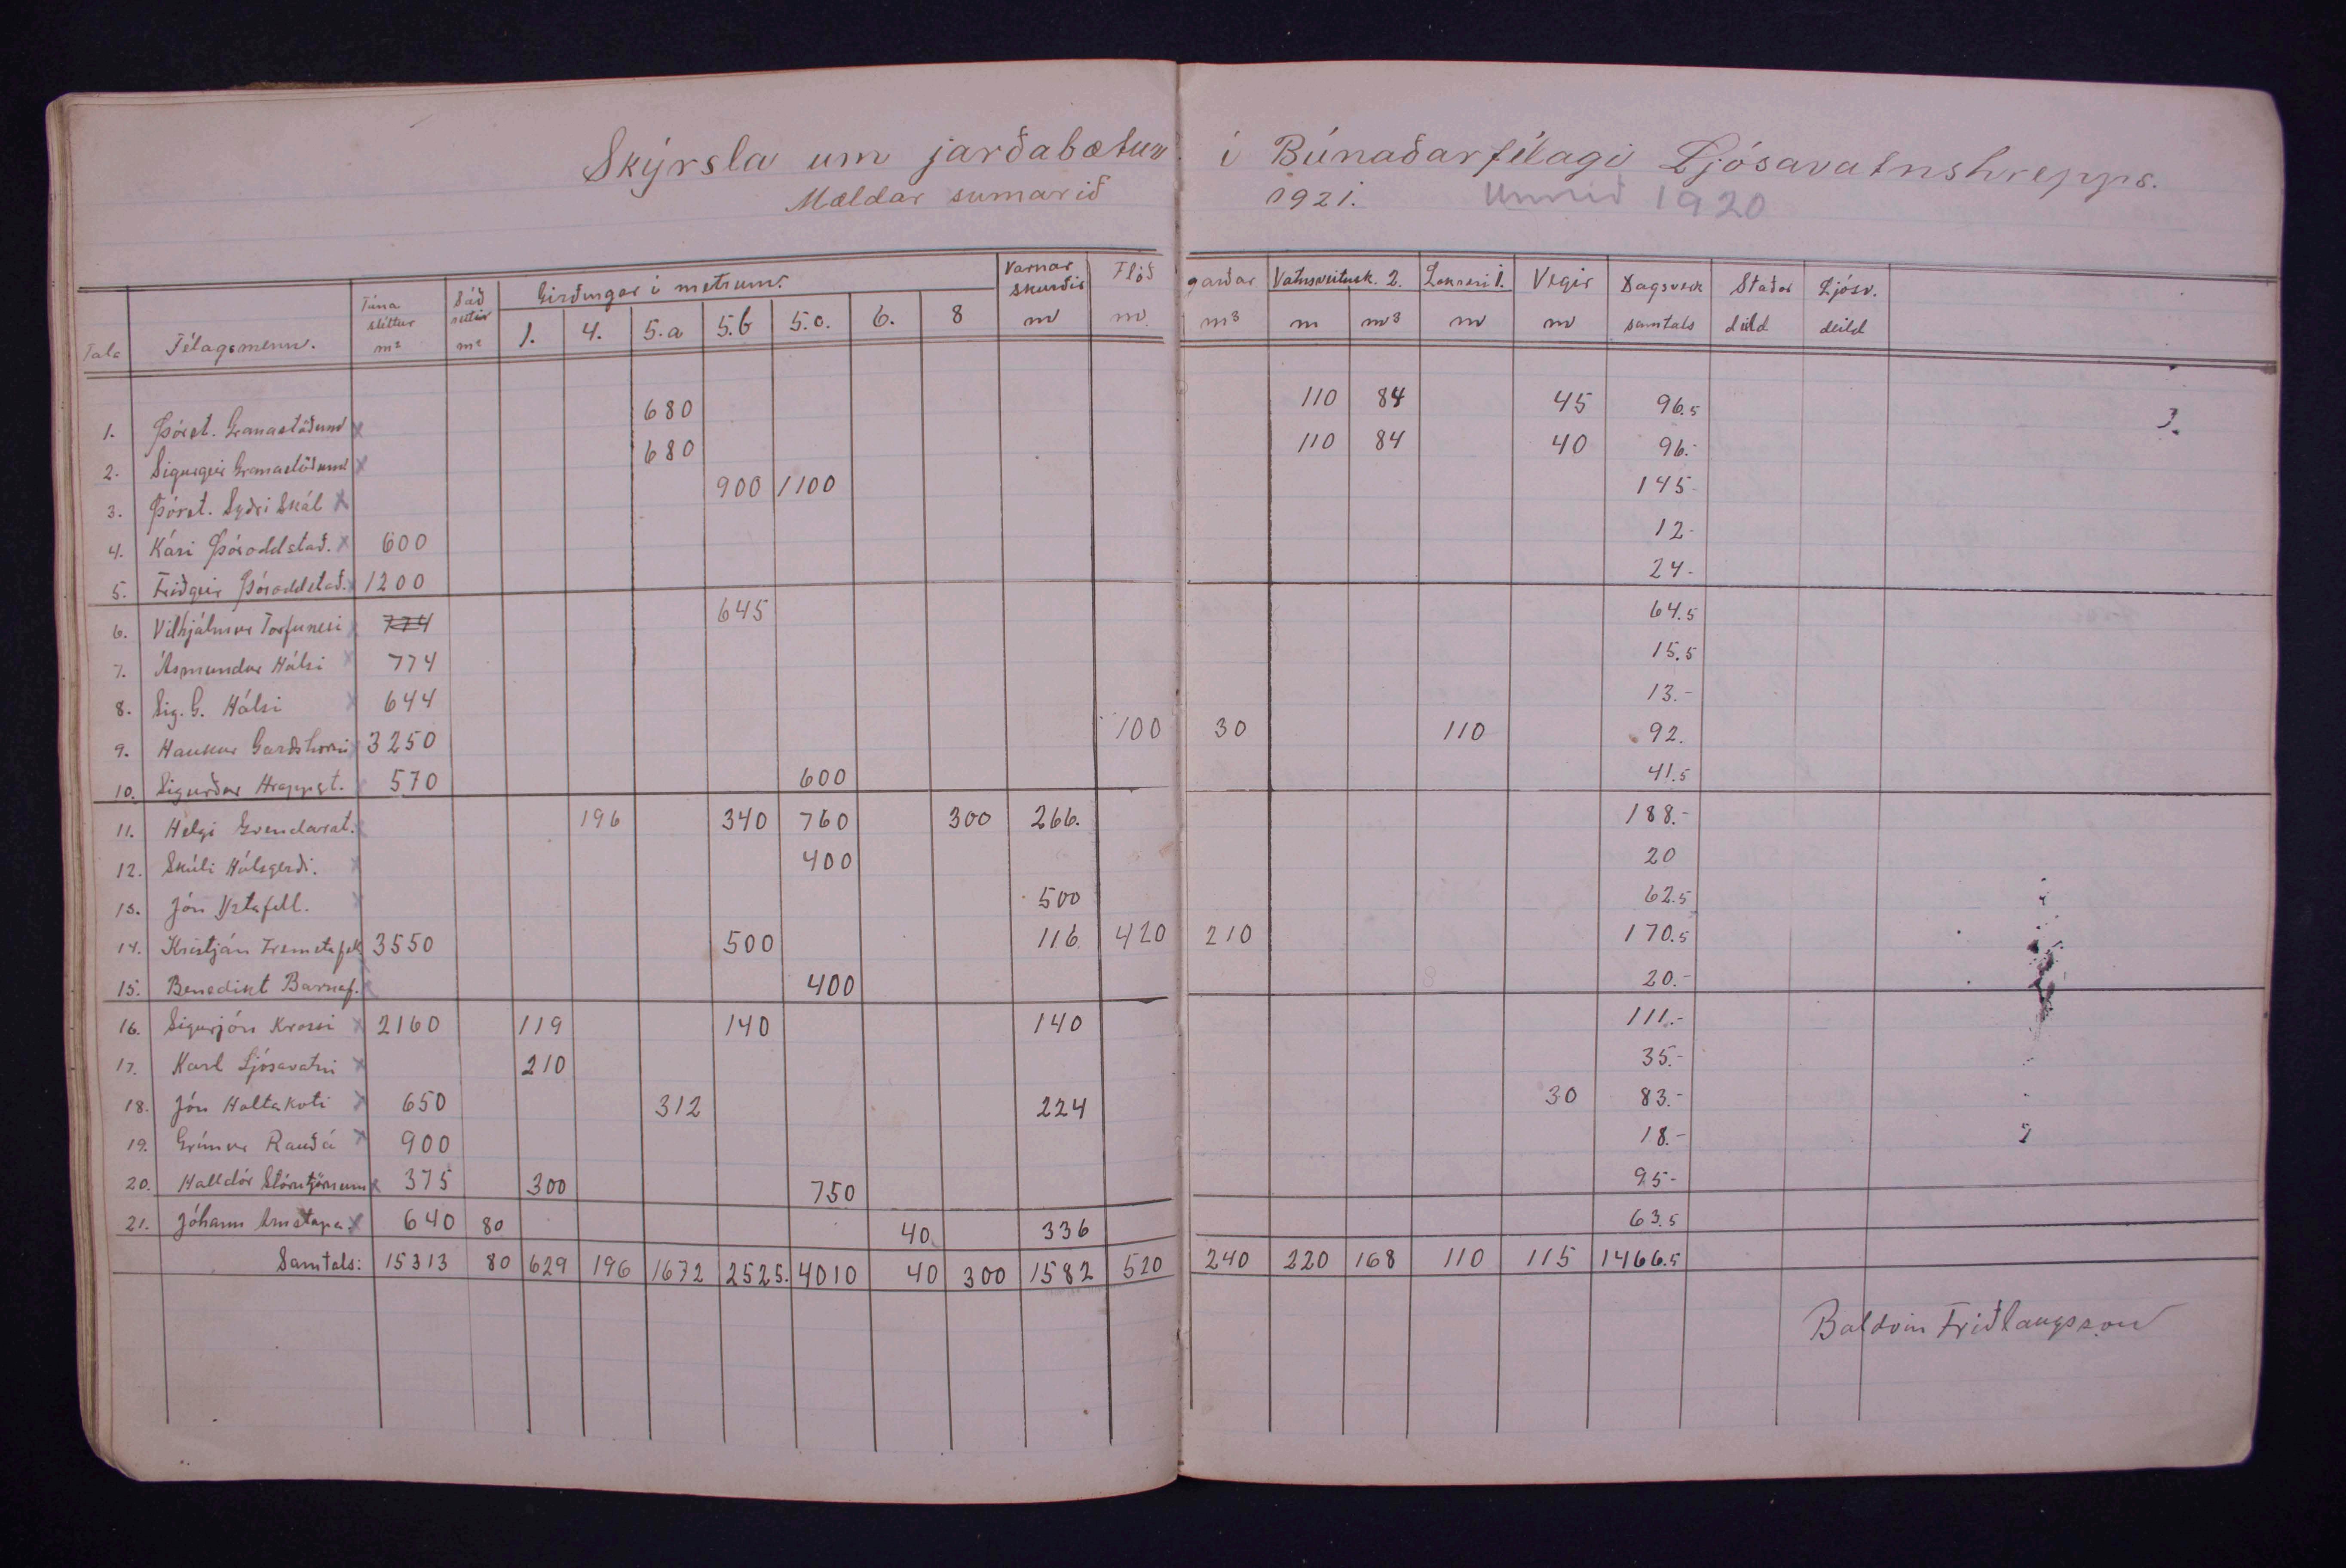 Skýrsla um jarðabætur í Búnaðarfélagi Ljósavatnshrepps.
Mældar sumarið 1921. Unnið 1920
Tala Félagsmenn. Túna sléttur m² Sáð reitir m² Girðingar í metrum. 1. 4. 5.a 5.b 5.c. 6. 8 Varnar skurðir m Flóð m garðar m³ Vatnsveitusk. 2. m m³ Lokræsi 1. m Vegir m Dagsverk samtals Staðar deild Ljósv. deild
1. Þórst. Granastöðum x 680 110 84 45 96.5
2. Sigurgeir Granastöðum x 680 110 84 40 96.-
3. Þórst. Syðri Skál x 900 1100 145-
4. Kári Þóroddstað. x 600 12-
5. Friðgeir Þóroddstað. x 1200 24-
6. Vilhjálmur Torfunesi x 774 645 64.5
7. Ásmundur Hálsi x 774 15.5
8. Sig. G. Hálsi x 644 13.-
9. Haukur Garðshorni x 3250 100 30 110 92.
10. Sigurður Hrappst. x 570 600 41.5
11. Helgi Grendarst. x 196 340 760 300 266. 188.-
12. Skúli Hálsgerði. x 400 20
13. Jón Ystafell. x 500 62.5
14. Kristján Fremstafell x 3550 500 116 420 210 170.5
15. Benedikt Barnaf. x 400 20.-
16. Sigurjón Krossi x 2160 119 140 140 111.-
17. Karl Ljósavatni x 210 35.-
18. Jón Holtakoti x 650 312 224 30 83.-
19. Grímur Rauðá x 900 18.-
20. Halldór Stórutjörnum x 375 300 750 95-
21. Jóhann Arnstapa. x 640 80 40 336 63.5
Samtals: 15313 80 629 196 1672 2525. 4010 40 300 1582 520 240 220 168 110 115 1466.5
Baldvin Friðlaugsson